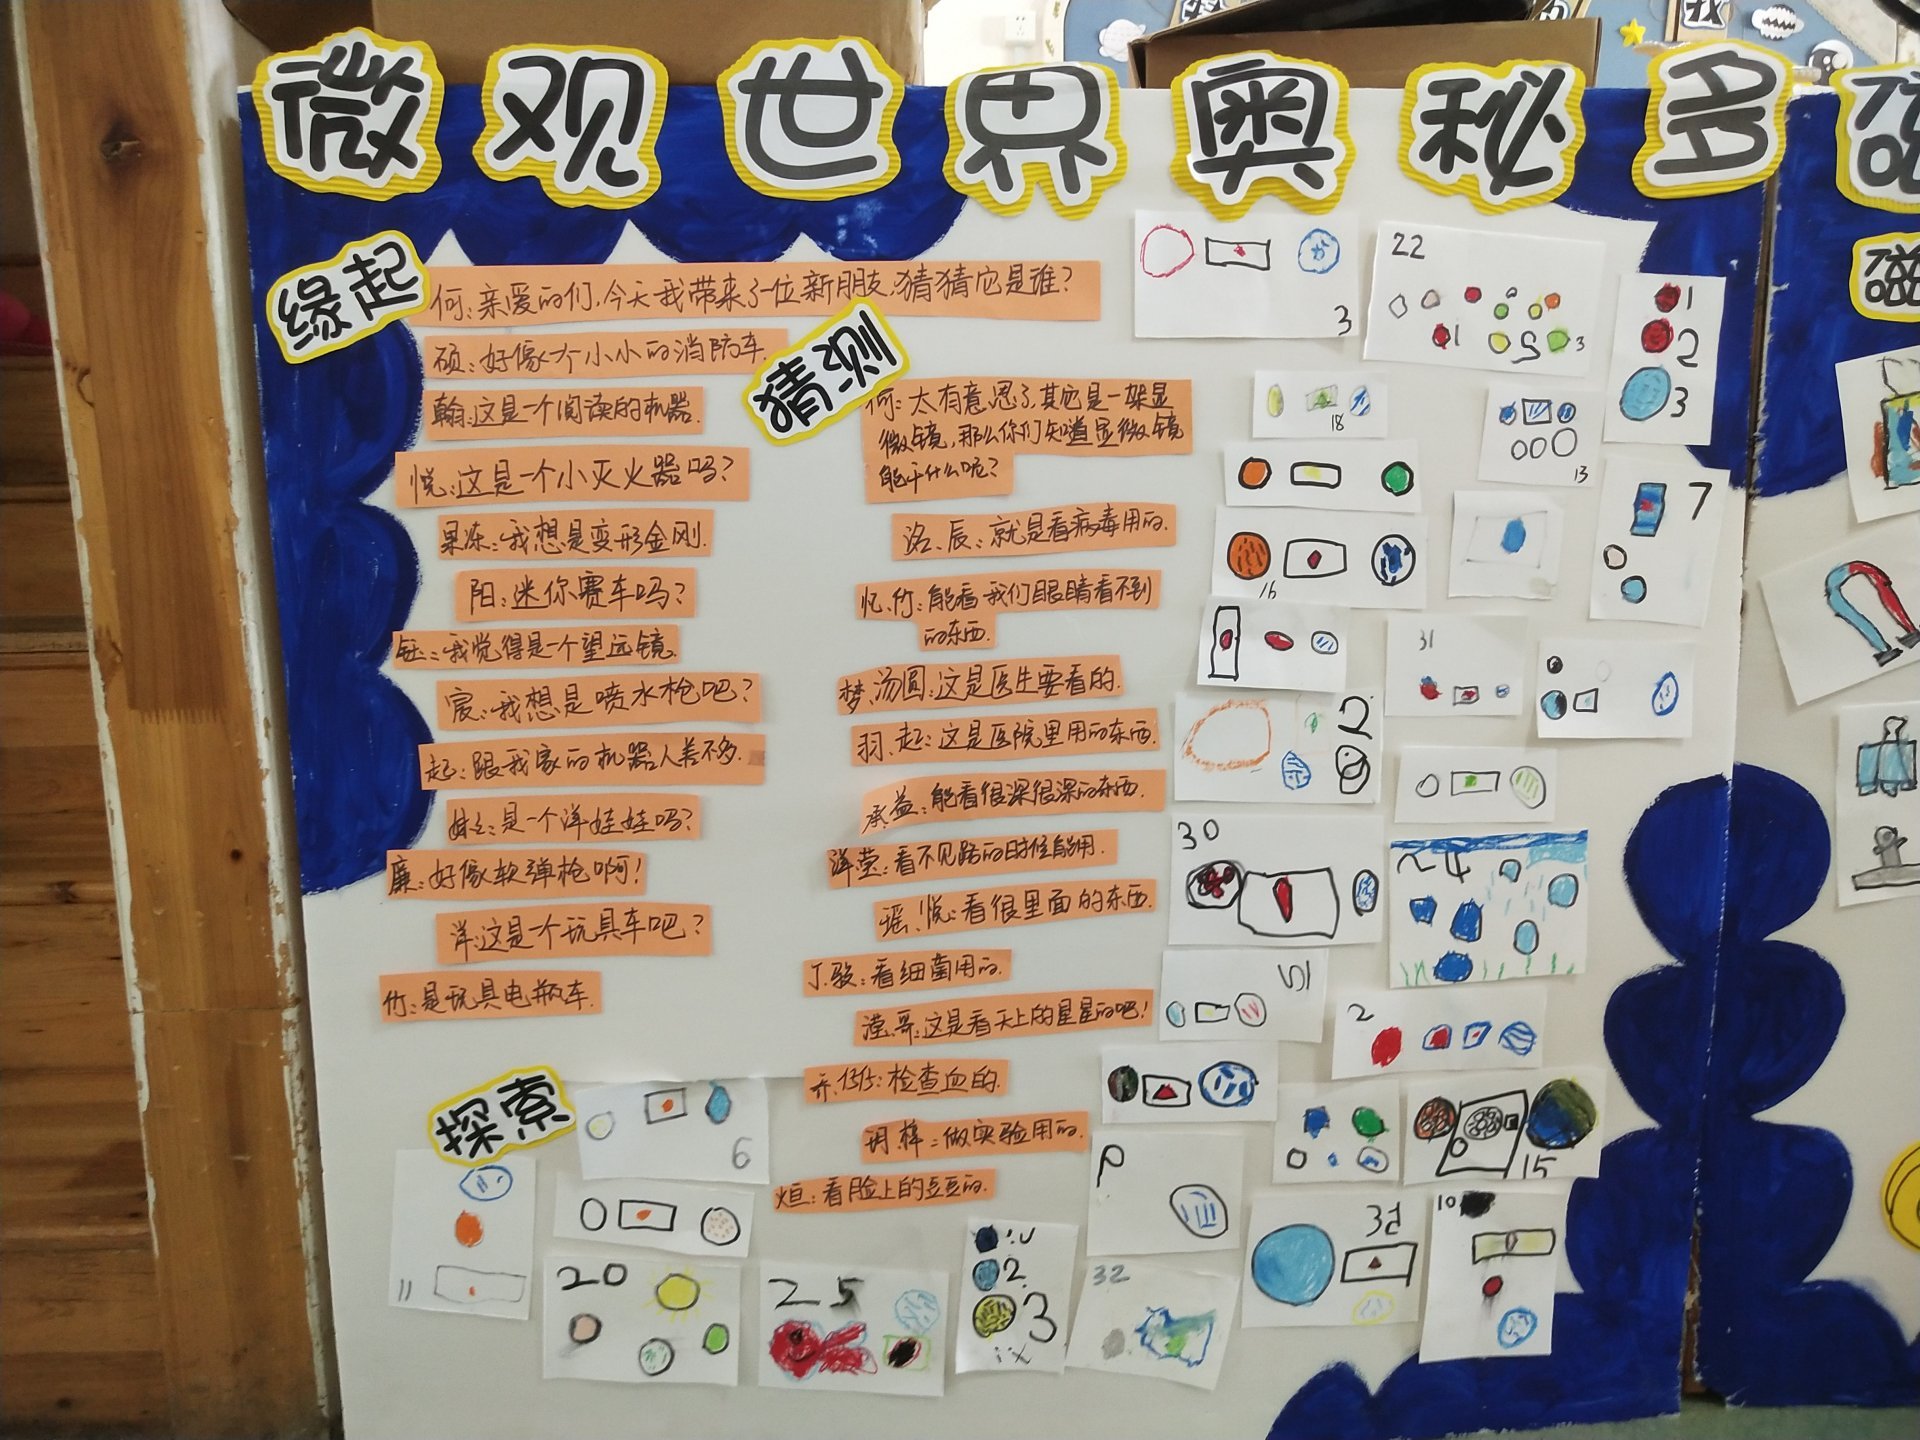 微观世界奥秘多
缘起
何：亲爱的们，今天我带来了一位新朋友，猜猜它是谁？
硕：好像个小小的消防车.
翰：这是一个阅读的机器.
悦：这是一个小灭火器吗？
果冻：我想是变形金刚.
阳：迷你赛车吗？
钰：我觉得是一个望远镜.
宸：我想是喷水枪吧？
起：跟我家的机器人差不多.
是一个洋娃娃吗？
廉：好像软弹枪啊！
洋：这是一个玩具车吧？
竹：是玩具电瓶车.
猜测
何：太有意思了，其它是一架显
微镜，那么你们知道显微镜
能干什么呢？
洛、辰：就是看病毒用的.
忆、竹：能看我们眼睛看不到
的东西.
梦、汤圆：这是医生要看的.
羽、起：这是医院里用的东西.
承益：能看很深很深的东西.
洋莹：看不见路的时候能用.
瑶、悦：看很里面的东西.
丁、骏：看细菌用的.
滢、哥：这是看天上的星星的吧！
检查血的.
玥、梓：做实验用的.
烜：看脸上的豆豆的.
探索
3
22
1
3
1
2
3
18
13
7
16
31
2
30
24
51
2
6
15
10
11
20
25
2
3
32
磁